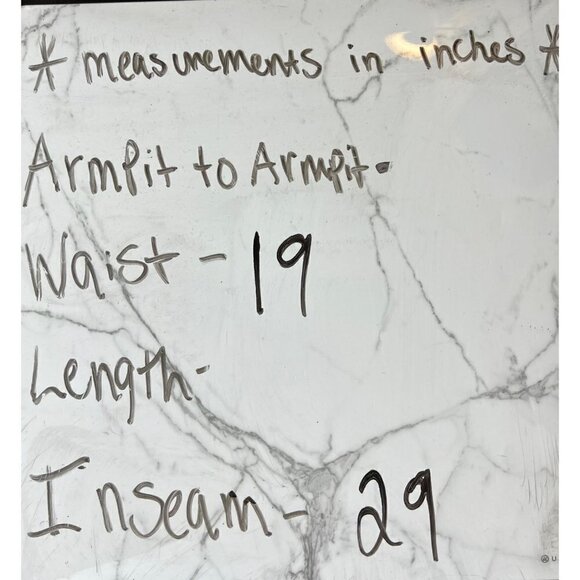 * measurements in inches *
Armpit to Armpit-
Waist - 19
Length-
Inseam - 29